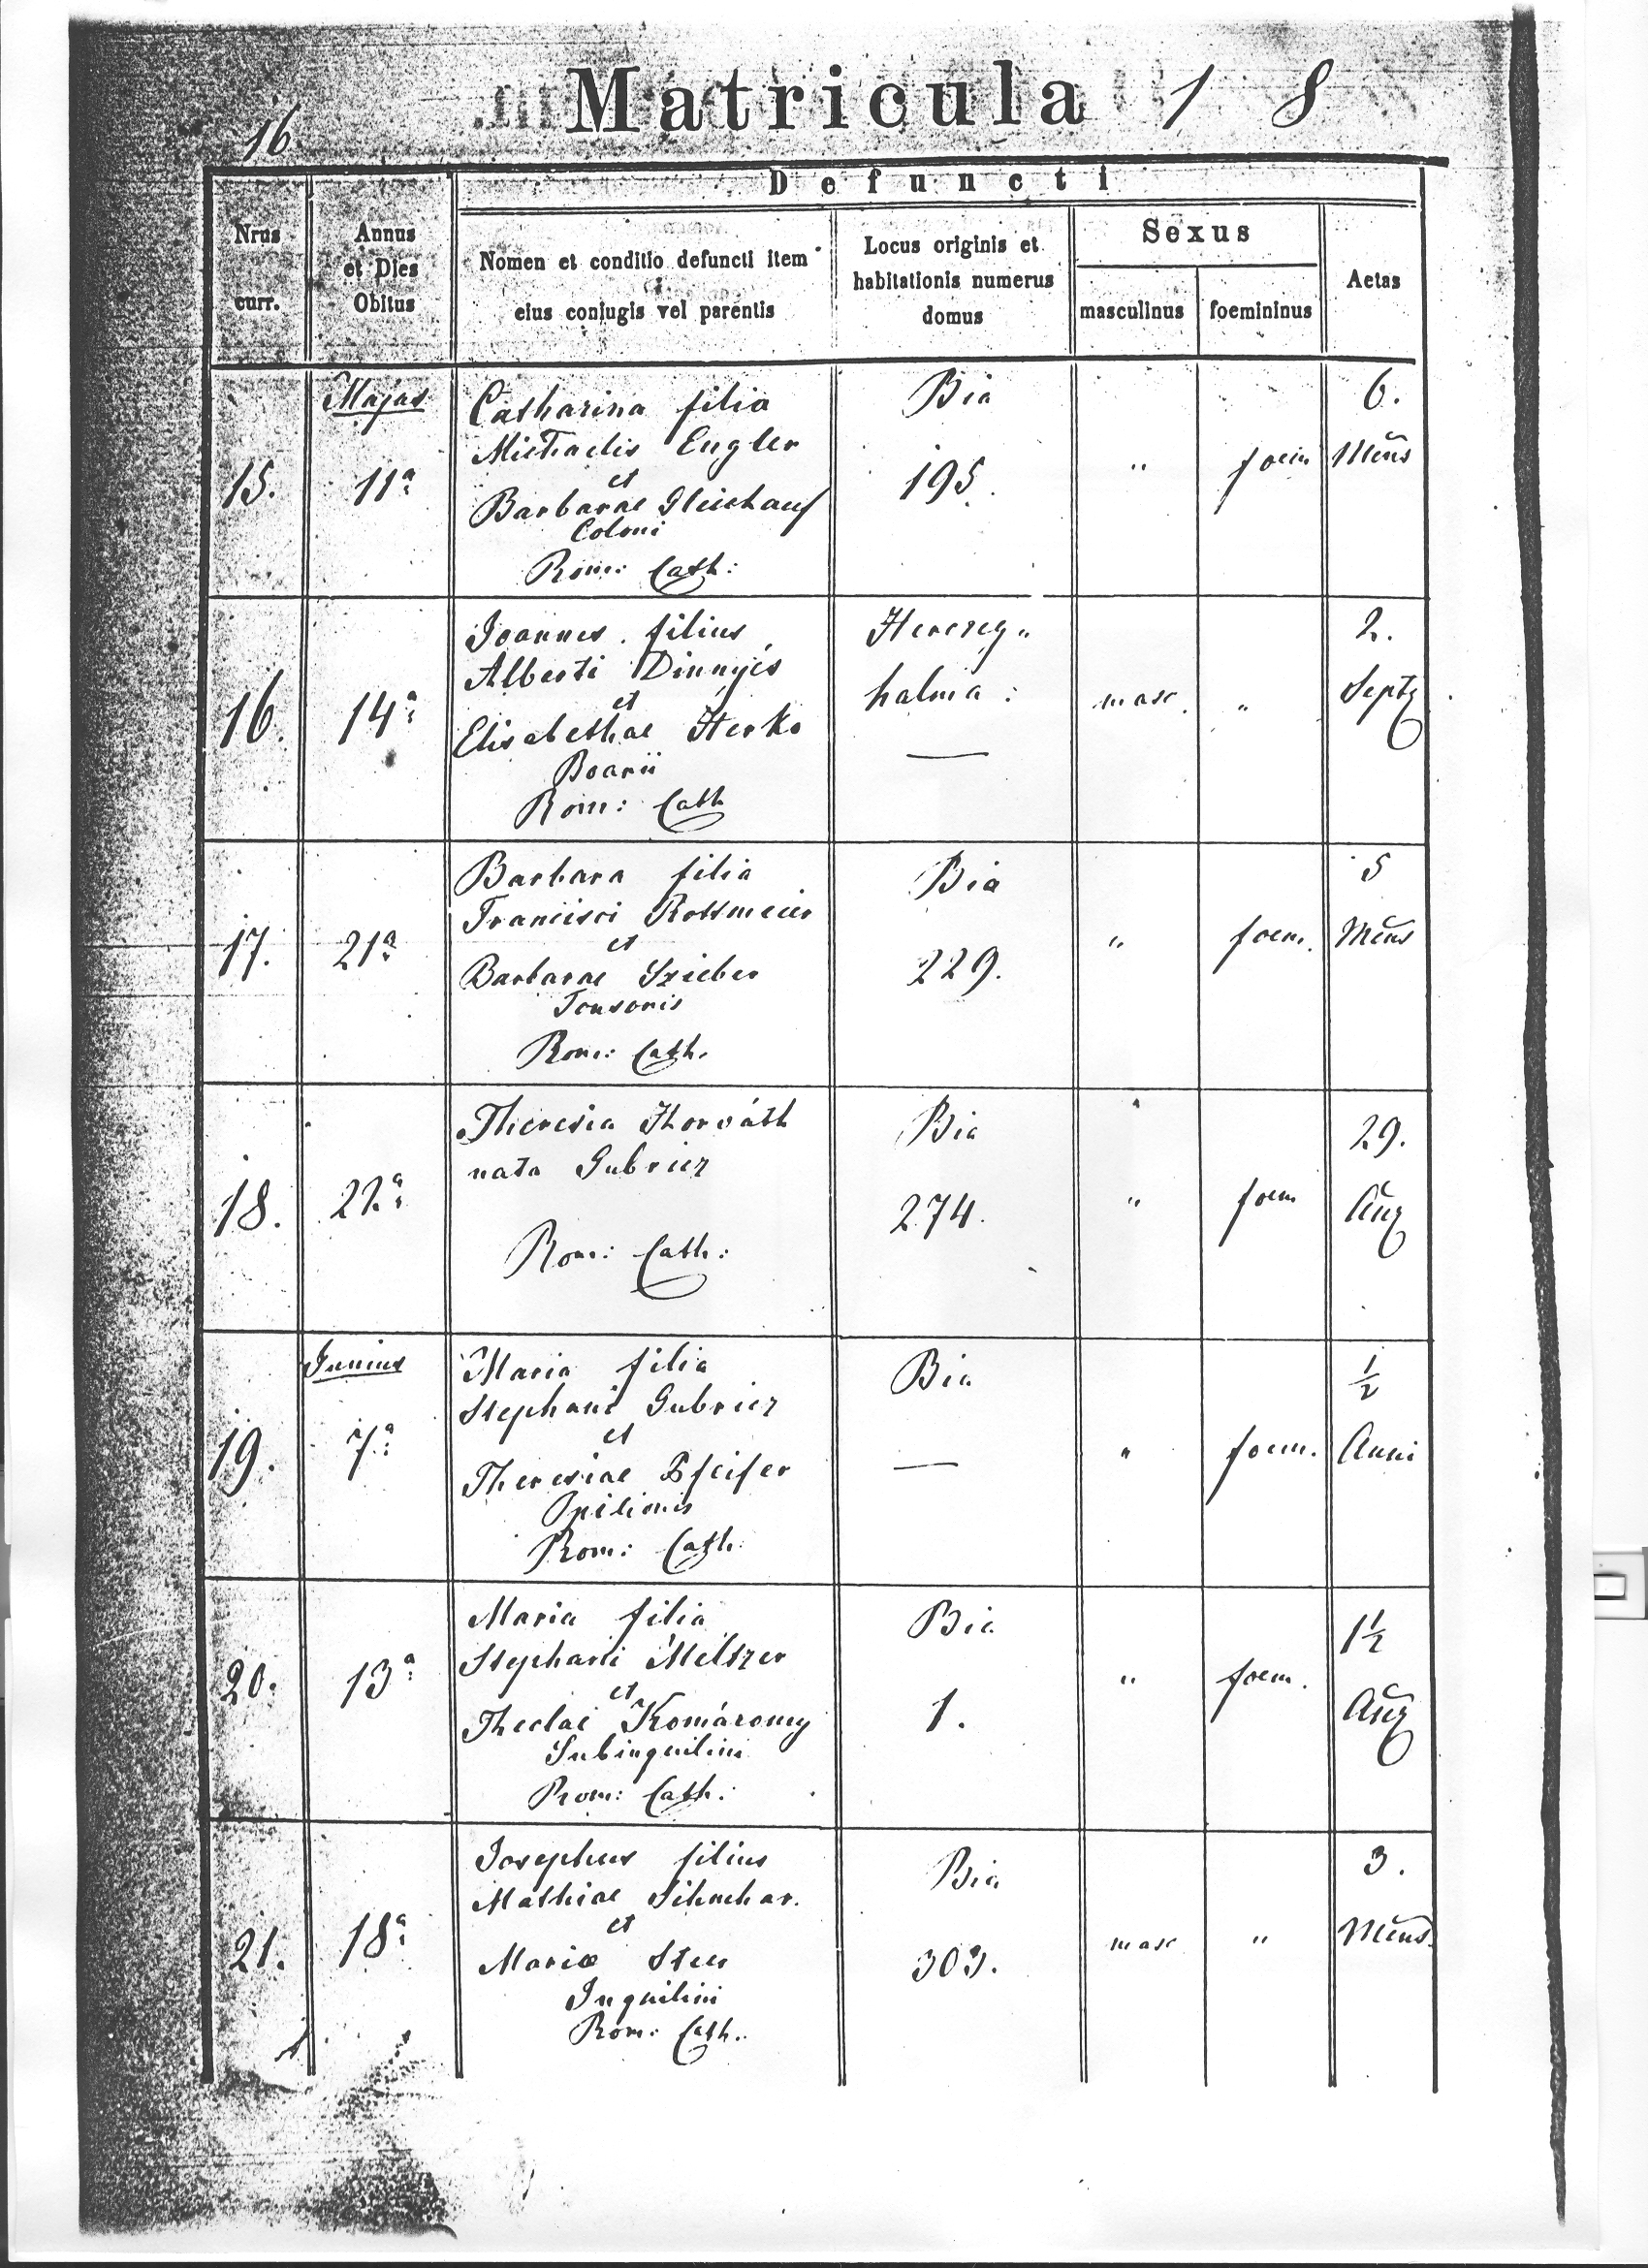 16.
Matricula 1 8
Defuncti
Nrus
curr.
Annus
et Dies
Obitus
Nomen et conditio defuncti item
eius conjugis vel parentis
Locus originis et
habitationis numerus
domus
Sexus
masculinus
foemininus
Aetas
15.
Majus
11a
Catharina filia
Michaelis Engler
et
Barbarae Gleichauf
Coloni
Rom: Cath:
Bia
195.
"
foem
6.
Mens
16.
14a
Joannes filius
Alberti Dinnyés
et
Elisabethae Herko
Boarii
Rom: Cath
Herczeg"
halma:
—
masc.
"
2.
Sept
17.
21a
Barbara filia
Francisci Rottmeier
et
Barbarae Szieber
Tonsoris
Rom: Cath.
Bia
229.
"
foem.
5
Mens
18.
22a
Theresia Horváth
nata Gubricz
Rom: Cath:
Bia
274.
"
foem
29.
19.
Junius
7a
Maria filia
Stephani Gubricz
et
Theresiae Pfeifer
Opilionis
Rom: Cath:
Bia
—
"
foem.
1/2
Anni
20.
13a
Maria filia
Stephani Meltzer
et
Theclae Komáromy
Subinquilini
Rom: Cath:
Bia
1.
"
foem.
1 1/2
21.
18a
Josephus filius
Mathiae
et
Mariae
Inquilini
Rom: Cath.
Bia
303.
masc
"
3.
Mens.